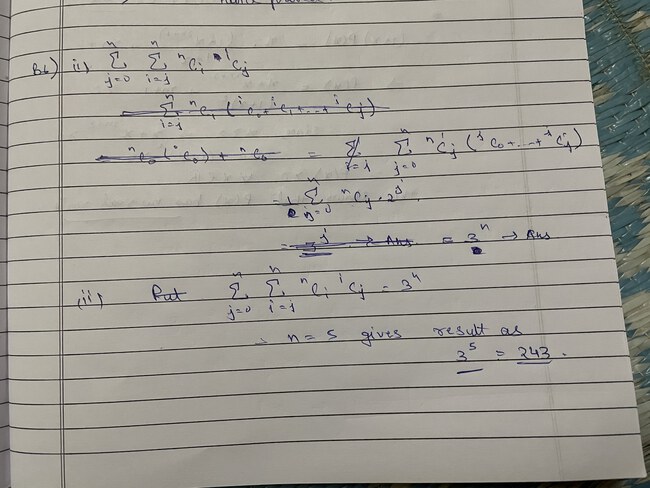 b) ii) n∑j=0 n∑i=j ⁿCᵢ · ⁱCⱼ
n∑i=j ⁿCᵢ (ⁱC₀ + ⁱC₁ + ... + ⁱCⱼ)
ⁿC₀ (ⁱC₀) + ⁿC₀ = ∑i=j n∑j=0 ⁿCⱼ (ʲC₀ + ... + ʲCⱼ)
= n∑j=0 ⁿCⱼ · 2ʲ
= 3ʲ → Ans = 3ⁿ → Ans
(ii) Put n∑j=0 n∑i=j ⁿCᵢ ⁱCⱼ = 3ⁿ
n = 5 gives result as
3⁵ = 243.